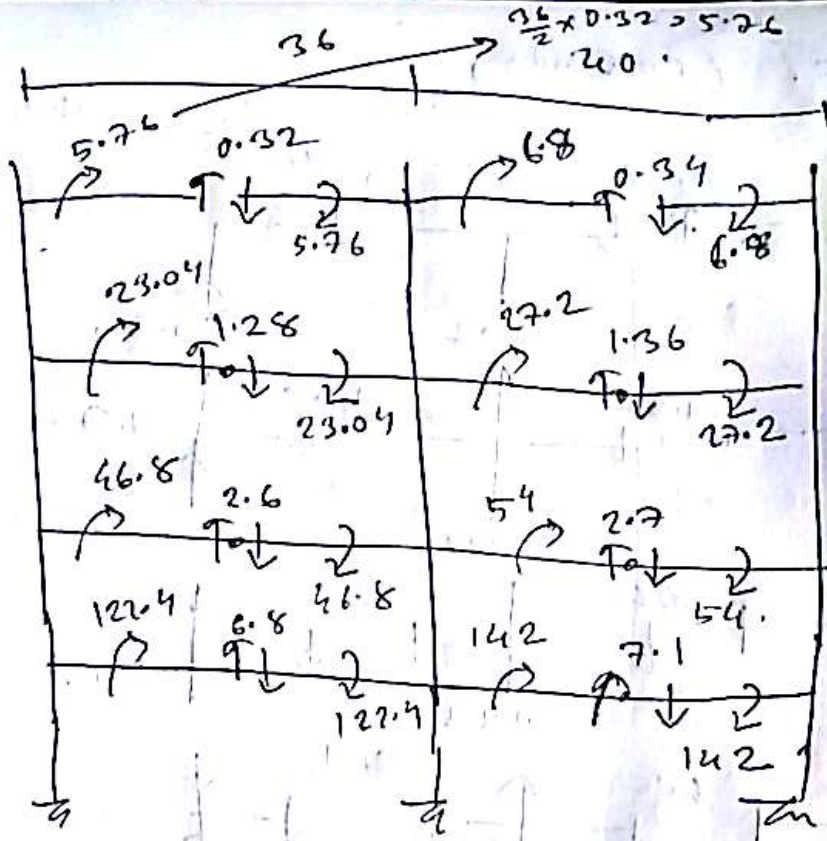 36
36/2 × 0.32 = 5.76
5.76
0.32
5.76
6.8
0.34
6.8
23.04
1.28
23.04
27.2
1.36
27.2
46.8
2.6
46.8
54
2.7
54.
122.4
6.8
122.4
142
7.1
142